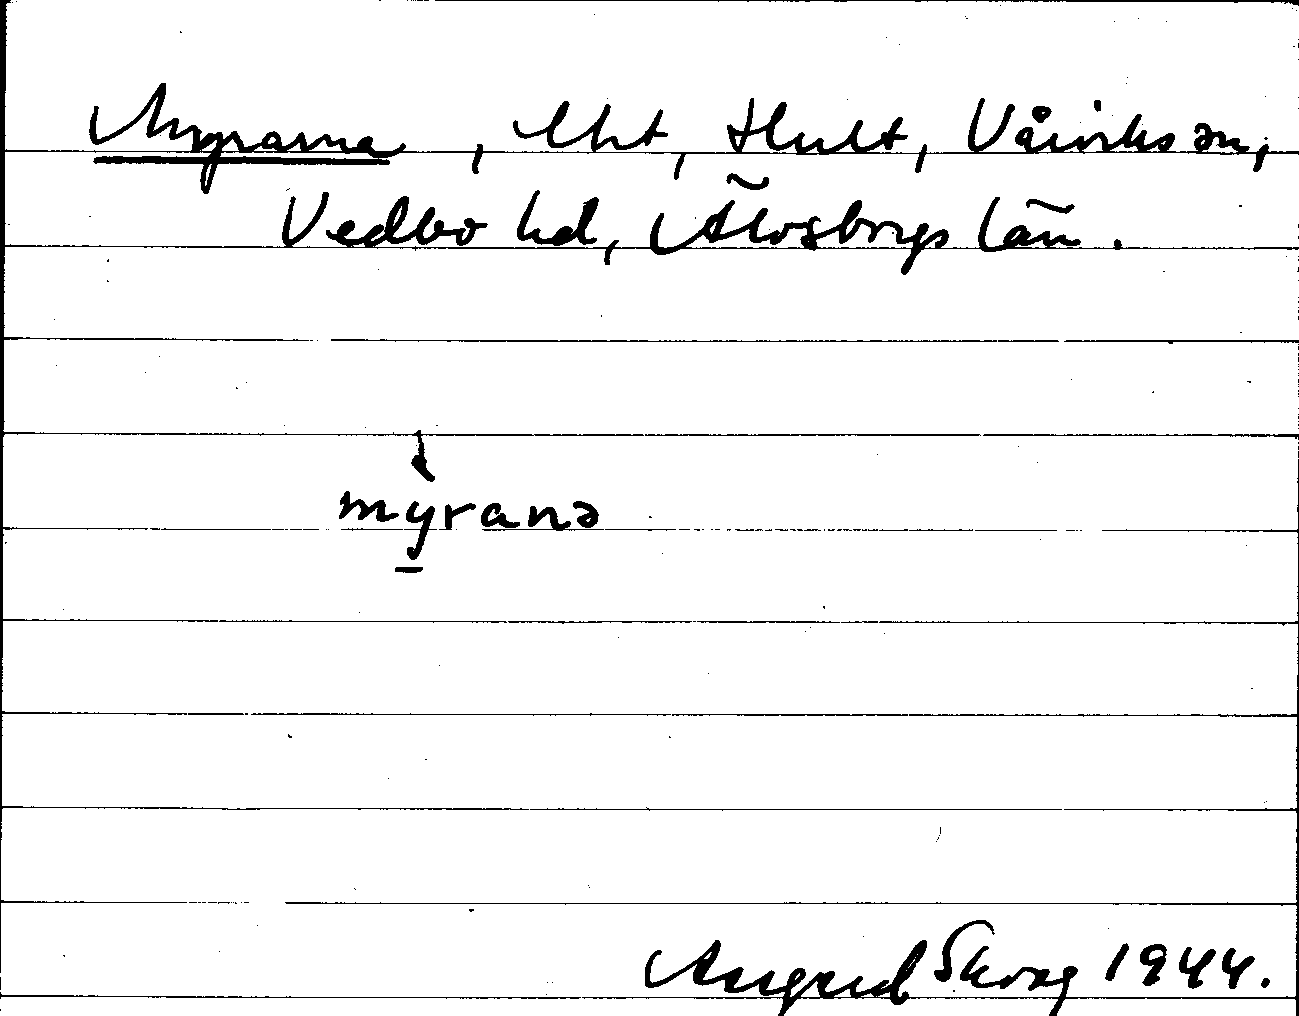 Myrarna, lht, Hult, Vårviks sn,
Vedbo hd, Älvsborgs län.
mỳranə
Skog 1944.